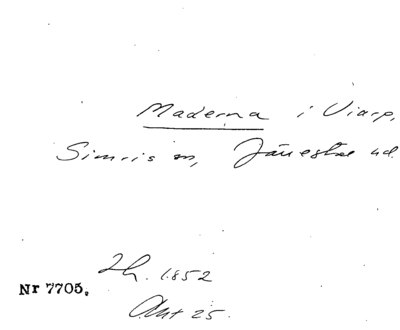 Maderna i Viarp,
Simris sn, Järrestad hd.
Lh. 1852
Nr 7705.
Akt 25.